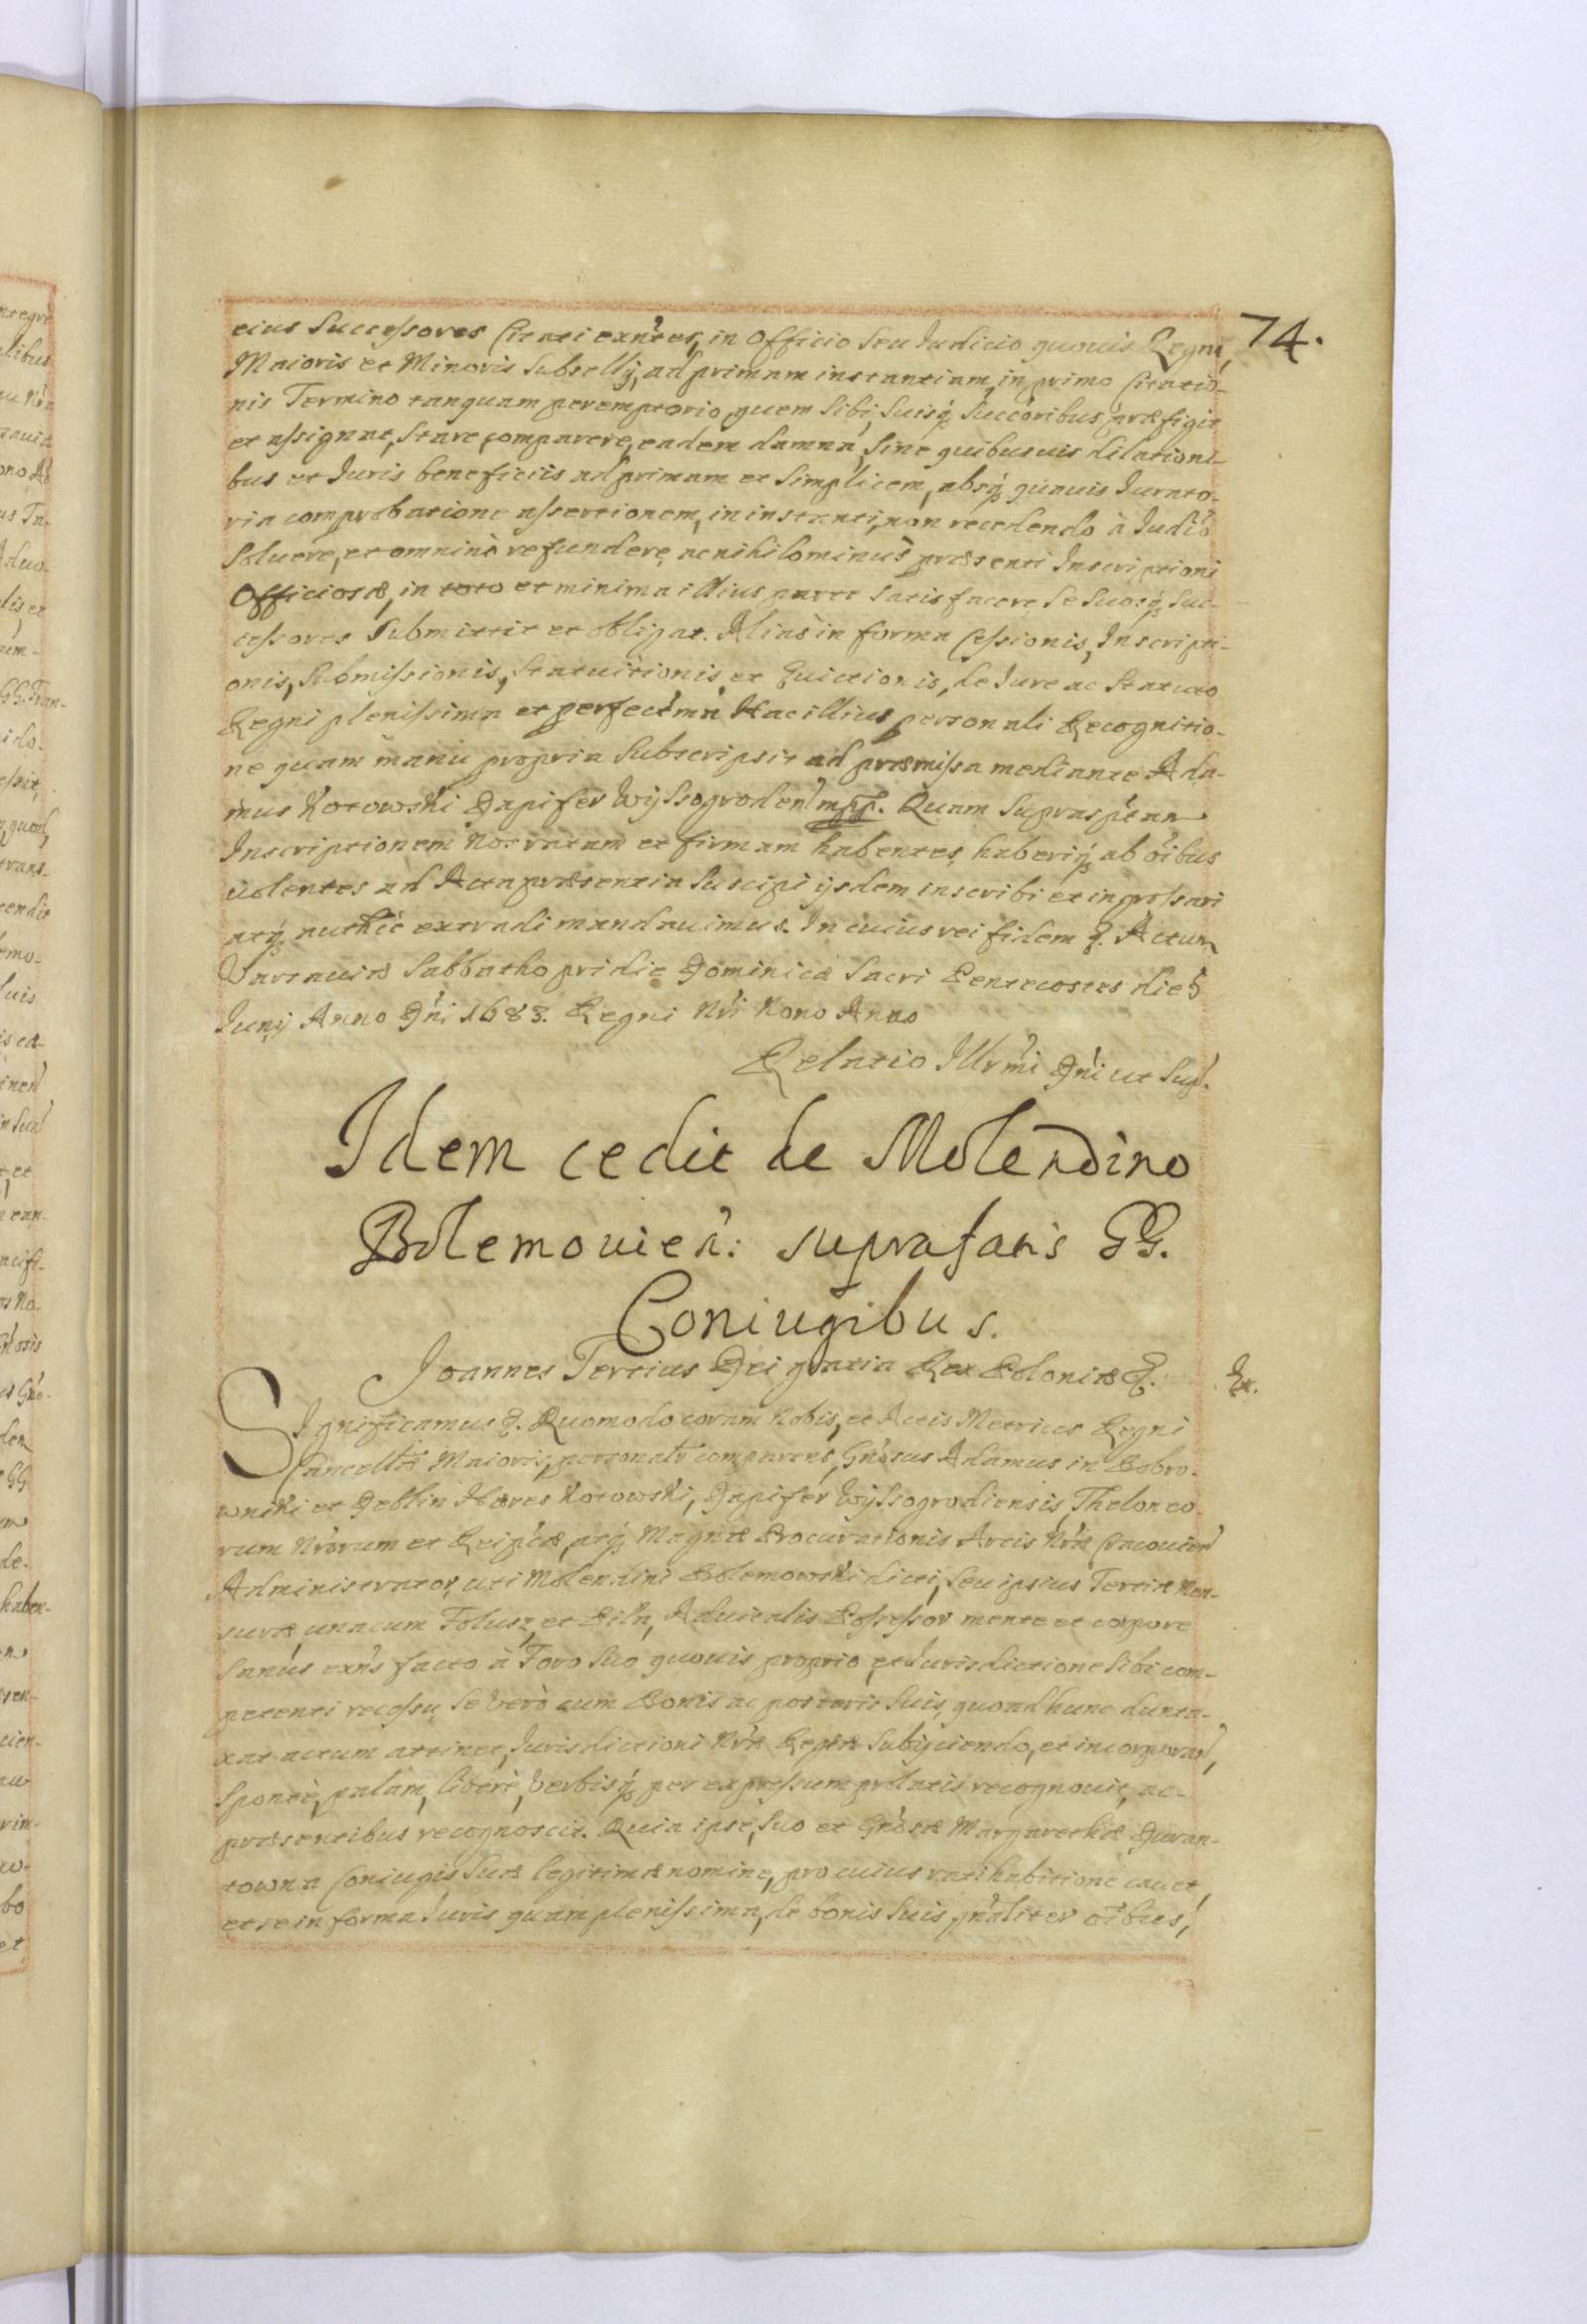 74.
eius Successores Citati exn̄tes, in Officio seu Iudicio quouis Regni,
Maioris et Minoris Subsellij, ad primam instantiam, in primo Citatio-
nis Termino tanquam peremptorio, quem Sibi, Suisq́ Succ̄oribus præfigit
et assignat, Stare, comparere, eadem damna, Sine quibusuis dilationi-
bus et Iuris beneficiis ad primam et Simplicem, absq́ quauis Iurato-
ria comprobatione assertionem, in instanti, non recedendo à Iud̄io
Soluere, et omninò refundere, ac nihilominus præsenti Inscriptioni
Officiosæ, in toto et minima illius parte satisfacere, Se Suosq́ Suc-
cessores Submittit et obligat. Alias in forma Cessionis, Inscripti-
onis, Submissionis, Statuitionis, et Euictionis, de Iure ac Statuto
Regni plenissima et perfect̄ma Hac illius personali Recognitio-
ne quam manu propria Subscripsit ad præmissa mediante Ada-
mus Kotowski Dapifer Wyssogroden̄ mpp. Quam Suprasp̄tam
Inscriptionem Nos ratam et firmam habentes, haberiq́ ab oībus
uolentes ad Acta præsentia Suscipi ijsdem inscribi et ingrossari
atq́ auth̄ce extradi mandauimus. In cuius rei fidem &. Actum
Varsauiæ Sabbatho pridie Dominicæ Sacri Pentecostes die 5
Iunij Anno Dn̄i 1683. Regni Nr̄i Nono Anno
Relatio Illr̄mi Dn̄i ut Sup̄.
Idem cedit de Molendino
Bolemouien̄: suprafatis GG.
Coniugibus.
Ioannes Tertius Dei gratia Rex Poloniæ &.
Ex.
SIgnificamus &. Quomodo coram Nobis, et Actis Metrices Regni
Cancell̄riæ Maioris, personalr̄ comparens, Gn̄osus Adamus in Bobro-
wniki et Deblin Hæres Kotowski, Dapifer Wyssogrodiensis, Theloneo-
rum Nr̄orum et Reip̄cæ, atq́ Magnæ Procurationis Arcis Nr̄æ Cracouien̄
Administrator, uti Molendini Bolemowski dicti, Seu ipsius Tertiæ Men-
suræ, unacum Folusz, et Pila, Aduitalis Possessor mente et corpore
Sanus exn̄s facto à Foro Suo quouis proprio, et Iurisdictione Sibi com-
petenti recessu, Se verò cum Bonis ac posteris Suis, quoad hunc dunta-
xat actum attinet, Iurisdictioni Nr̄æ Regiæ Subijciendo, et incorporan̄,
Sponte, palam, liberè, Verbisq́ per expressum prolatis recognouit, ac-
præsentibus recognoscit. Quia ipse, Suo et Gn̄osæ Margarethæ Duran-
towna Coniugis Suæ legitimæ nomine, pro cuius ratihabitione cauet,
et se in forma Iuris quam plenissima, de bonis Suis gn̄aliter oībus,